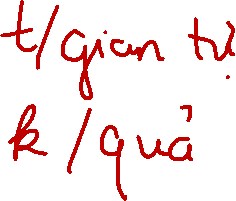 t/gian từ
k/quả